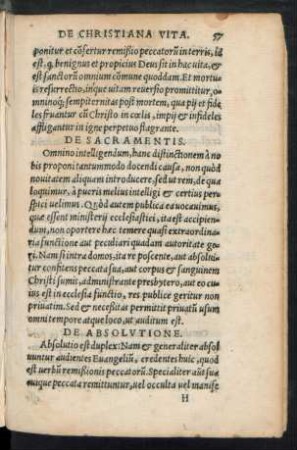 DE CHRISTIANA VITA. 57
ponitur et cõfertur remißio peccatorũ in terris, id
est, q. benignus et propicius Deus sit in hac uita, &
est sanctorũ omnium cõmune quoddam. Et mortuis
resurrectio, inque uitam reuersio promittitur, o-
mninoq; sempiternitas post mortem, qua pij et fide
les fruantur cũ Christo in cœlis, impij & infideles
affligantur in igne perpetuo flagrante.
DE SACRAMENTIS.
Omnino intelligendum, hanc distinctionem à no
bis proponi tantummodo docendi causa, non quòd
nouitatem aliquam introducere, sed ut rem, de qua
loquimur, à pueris melius intelligi & certius per
spici uelimus. Quòd autem publica ea uocauimus,
quæ essent ministerij ecclesiastici, ita est accipien-
dum, non oportere hæc temere quasi extraordina
ria functione aut peculiari quadam autoritate ge
ri. Nam si intra domos, ita re poscente, aut absolui
confitens peccata sua, aut corpus & sanguinem
Christi sumit, administrante presbytero, aut eo cu
ius est in ecclesia functio, res publice geritur non
priuatim. Sed & necessitas permittit priuatũ usum
omni tempore atque loco, ut auditum est.
DE ABSOLVTIONE.
Absolutio est duplex: Nam & generaliter absol
uuntur audientes Euangeliũ, credentes huic, quod
est uerbũ remißionis peccatorũ. Specialiter aũt sua
cuique peccata remittuntur, uel occulta uel manife
H